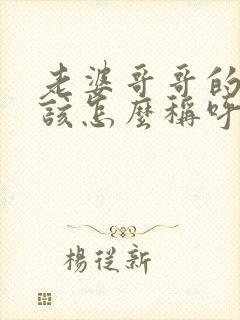 老婆哥哥的
該怎麼稱呼
楊從新